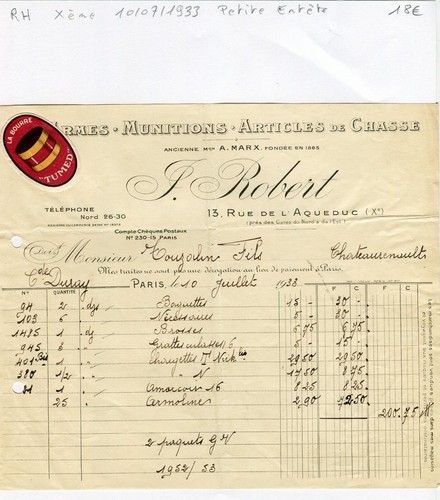 RH Xème 10/07/1933 Petite Entête 18€
LA BOURRE
"TUMED"
ARMES · MUNITIONS · ARTICLES DE CHASSE
ANCIENNE Mson A. MARX, FONDÉE EN 1885
J. Robert
TÉLÉPHONE
Nord 26-30
13, RUE DE L'AQUEDUC (Xe)
(près des Gares du Nord & de l'Est)
Compte Chèques Postaux
No 230-15 PARIS
Doit Monsieur Fils Chateaurenault
Mes traites ne sont pas une dérogation au lieu de paiement à Paris.
PARIS, le 10 Juillet 1933
Nos QUANTITÉ F C F C
94 2 dz Baguettes 15 - 30 -
103 6 Nécessaires 5 - 30 -
1485 1 dz Brosses 6,75 6,75
945 3 5 - 15 -
401 Bis 1 29,50 29,50
380 1/2 N 17,50 8,75
81 1 Amorçoir 16 8,25 8,25
25 Armolines 2,90 72,50
200,75
2 paquets GV
1952/53